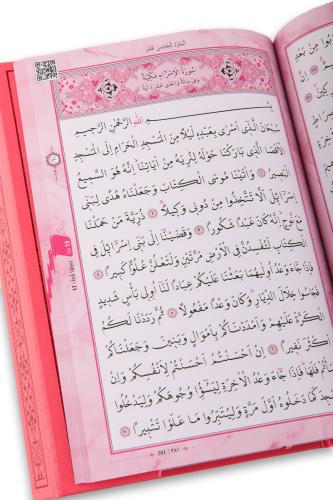 الجُزْءُ الْخَامِسَ عَشَرَ
سُورَةُ الْإِسْرَاءِ مَكِّيَّةٌ
وَهِيَ مِائَةٌ وَإِحْدَى عَشْرَةَ آيَةً
بِسْمِ اللهِ الرَّحْمٰنِ الرَّحِيمِ
سُبْحَانَ الَّذِي أَسْرٰى بِعَبْدِهِ لَيْلًا مِنَ الْمَسْجِدِ الْحَرَامِ إِلَى الْمَسْجِدِ
الْأَقْصَا الَّذِي بَارَكْنَا حَوْلَهُ لِنُرِيَهُ مِنْ اٰيَاتِنَا إِنَّهُ هُوَ السَّمِيعُ
الْبَصِيرُ ﴿١﴾ وَاٰتَيْنَا مُوسَى الْكِتَابَ وَجَعَلْنَاهُ هُدًى لِبَنِي
إِسْرَائِيلَ أَلَّا تَتَّخِذُوا مِنْ دُونِي وَكِيلًا ﴿٢﴾ ذُرِّيَّةَ مَنْ حَمَلْنَا
مَعَ نُوحٍ إِنَّهُ كَانَ عَبْدًا شَكُورًا ﴿٣﴾ وَقَضَيْنَا إِلٰى بَنِي إِسْرَائِيلَ فِي
الْكِتَابِ لَتُفْسِدُنَّ فِي الْأَرْضِ مَرَّتَيْنِ وَلَتَعْلُنَّ عُلُوًّا كَبِيرًا ﴿٤﴾
فَإِذَا جَاءَ وَعْدُ أُولٰيهُمَا بَعَثْنَا عَلَيْكُمْ عِبَادًا لَنَا أُولِي بَأْسٍ شَدِيدٍ
فَجَاسُوا خِلَالَ الدِّيَارِ وَكَانَ وَعْدًا مَفْعُولًا ﴿٥﴾ ثُمَّ رَدَدْنَا لَكُمُ
الْكَرَّةَ عَلَيْهِمْ وَأَمْدَدْنَاكُمْ بِأَمْوَالٍ وَبَنِينَ وَجَعَلْنَاكُمْ
أَكْثَرَ نَفِيرًا ﴿٦﴾ إِنْ أَحْسَنْتُمْ أَحْسَنْتُمْ لِأَنْفُسِكُمْ وَإِنْ
أَسَأْتُمْ فَلَهَا فَإِذَا جَاءَ وَعْدُ الْاٰخِرَةِ لِيَسُوؤُا وُجُوهَكُمْ وَلِيَدْخُلُوا
الْمَسْجِدَ كَمَا دَخَلُوهُ أَوَّلَ مَرَّةٍ وَلِيُتَبِّرُوا مَا عَلَوْا تَتْبِيرًا ﴿٧﴾
281 | ٢٨١
15
17 - İsrâ Sûresi